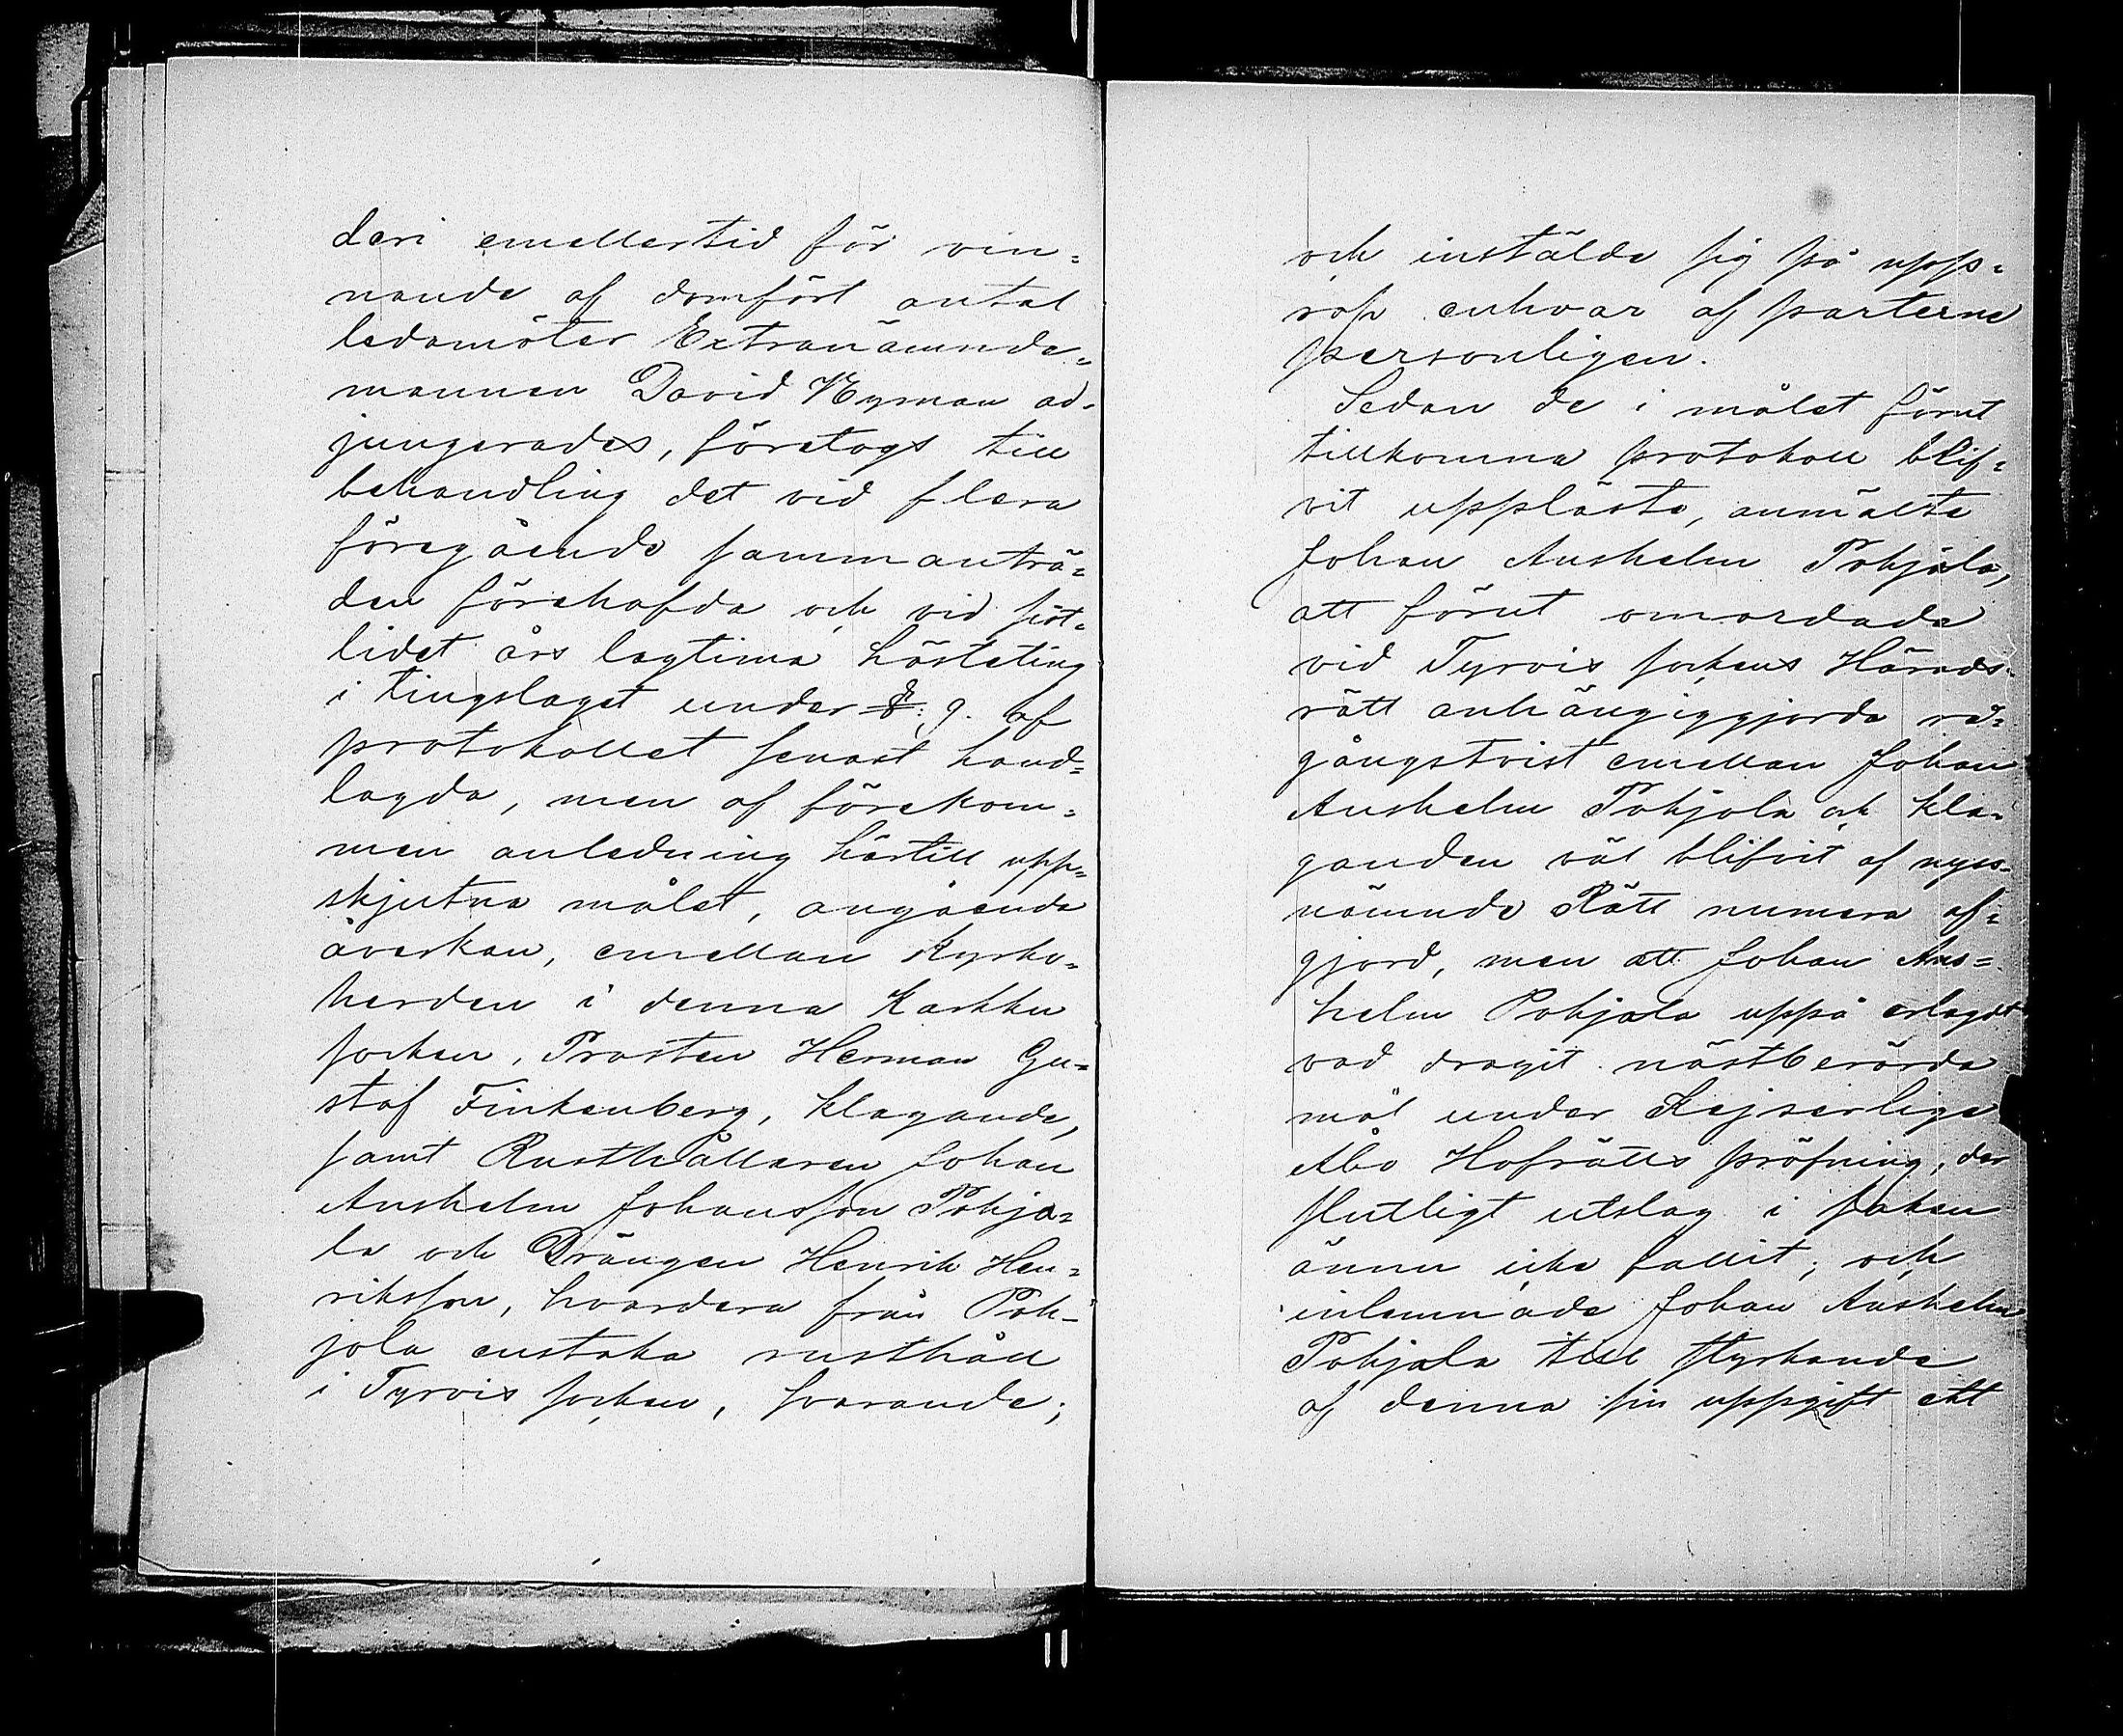 deri emellertid för vin=
nande af domfört antal
ledamöter Extranämnde=
mannen David Nyman ad=
jungerades, företogs till
behandling det vid flera
föregående sammanträ=
den förehafda och vid sist=
lidet års lagtima hösteting
i tingslaget under §: 9. af
protokollet senast hand=
lagda, men af förekom=
men anledning härtill upp=
skjutna målet, angående
åverkan, emellan Kyrko=
herden i denna Karkku
socken, Prosten Herman Gu=
staf Finkenberg, klagande,
samt Rusthållaren Johan
Anshelm Johansson Pohjo=
la och Drängen Henrik Hen=
riksson, hvardera från Poh=
jola enstaka rusthåll
i Tyrvis socken, svarande;
och instälde sig på upp=
rop enhvar af parterne
personligen.
Sedan de i målet förut
tillkomna protokoll blif=
vit uppläste, anmälte
Johan Anshelm Pohjola,
att förut omordade
vid Tyrvis sockens Härads=
rätt anhängiggjorda rå=
gångstvist emellan Johan
Anshelm Pohjola och kla=
ganden väl blifvit af nyss=
nämnde Rätt numera af=
gjord, men att Johan Ans=
helm Pohjola uppå erlagdt
vad dragit nästberörda
mål under Kejserliga
Åbo Hofrätts pröfning, der
slutligt utslag i saken
ännu icke fallit; och
inlemnade Johan Anshelm
Pohjola till styrkande
af denna sin uppgift ett